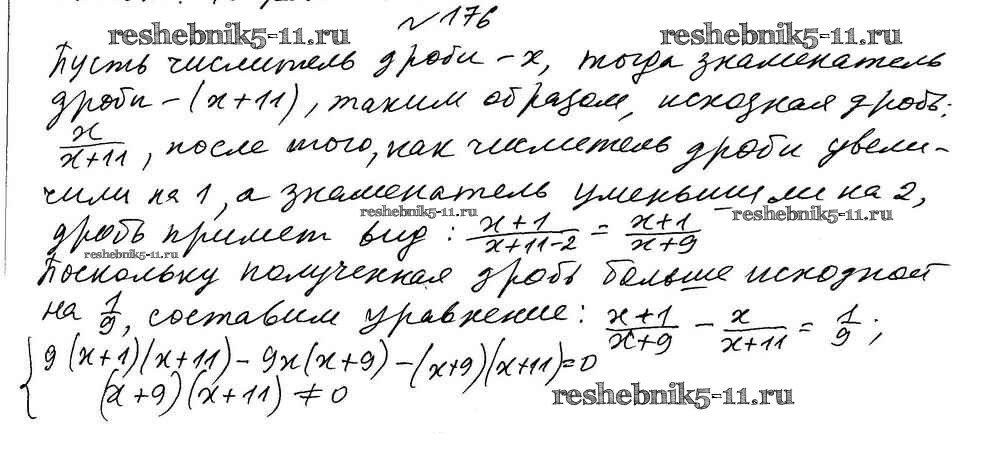 №176
reshebnik5-11.ru reshebnik5-11.ru
Пусть числитель дроби – x, тогда знаменатель
дроби – (x+11), таким образом, исходная дробь:
x/(x+11), после того, как числитель дроби увели-
чили на 1, а знаменатель уменьшили на 2,
reshebnik5-11.ru reshebnik5-11.ru
дробь примет вид: (x+1)/(x+11-2) = (x+1)/(x+9)
reshebnik5-11.ru
Поскольку полученная дробь больше исходной
на 1/9, составим уравнение: (x+1)/(x+9) – x/(x+11) = 1/9;
{ 9(x+1)(x+11) – 9x(x+9) – (x+9)(x+11)=0
(x+9)(x+11) ≠ 0
reshebnik5-11.ru